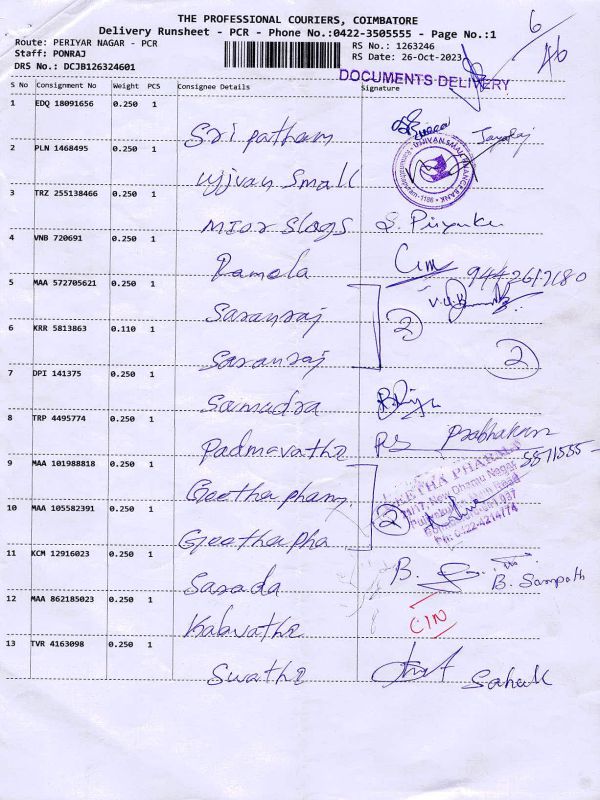 THE PROFESSIONAL COURIERS, COIMBATORE
Delivery Runsheet - PCR - Phone No.:0422-3505555 - Page No.:1
Route: PERIYAR NAGAR - PCR
Staff: PONRAJ
DRS No.: DCJB126324601
RS No.: 1263246
RS Date: 26-Oct-2023
6
DOCUMENTS DELIVERY
S No Consignment No Weight PCS Consignee Details Signature
1 EDQ 18091656 0.250 1
Sri patham
Jayaraj
2 PLN 1468495 0.250 1
Ujjvan Small
UJJIVAN SMALL FINANCE BANK
3 TRZ 255138466 0.250 1
Mior Slogs S. Priyanka
4 VNB 720691 0.250 1
Ramola
9442617180
5 MAA 572705621 0.250 1
Saranraj
2
6 KRR 5813863 0.110 1
Saranraj
2
7 DPI 141375 0.250 1
Samudra
8 TRP 4495774 0.250 1
Padmavathi RS Prabhakaran
9 MAA 101988818 0.250 1
Geetha pham
GEETHA PHARMA
Ph: 0422-4214774
2
10 MAA 105582391 0.250 1
Geethapha
11 KCM 12916023 0.250 1
Sasada
B. Sampath
12 MAA 862185023 0.250 1
Kalavathi
CIN
13 TVR 4163098 0.250 1
Swathi